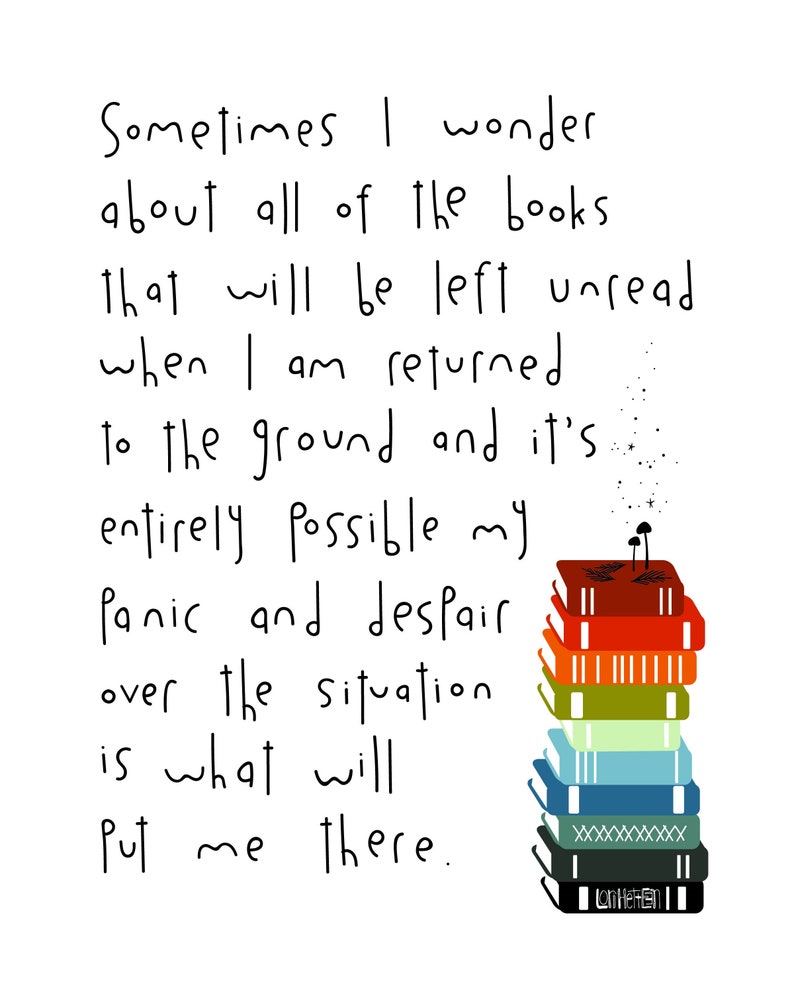 Sometimes I wonder
about all of the books
that will be left unread
when I am returned
to the ground and it's
entirely possible my
panic and despair
over the situation
is what will
put me there.
Lori Hetteen